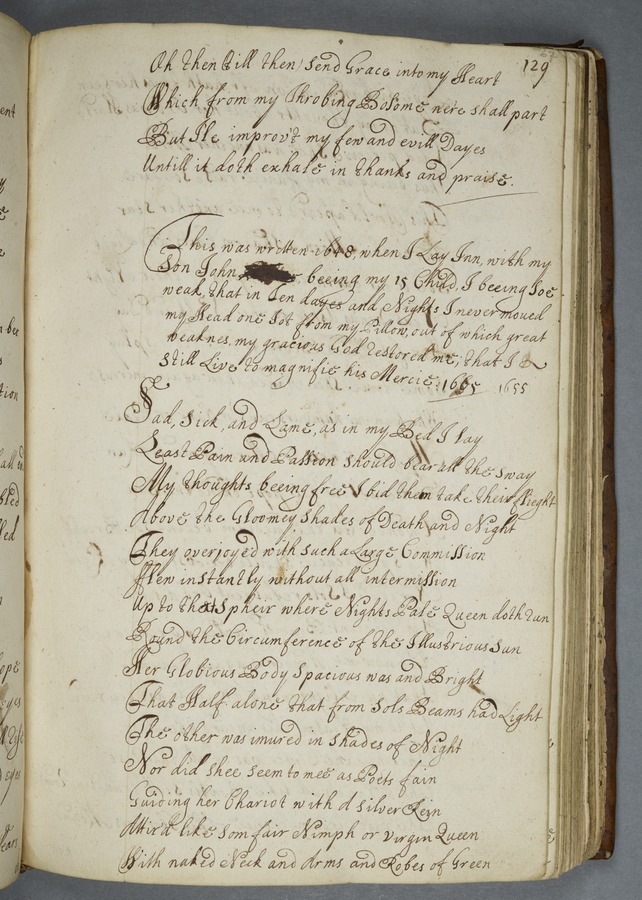 129
Oh then till then, send Grace into my Heart
Which from my Throbing Bosome nere shall part
But Ile improv't my few and evill Dayes
Untill it doth exhale in thanks and praise.
This was written 1648, when I Lay Inn, with my
Son John beeing my 15 Child, I beeing soe
weak, that in Ten dayes and Nights I never moved
my Head one Jot from my Pillow, out of which great
weaknes, my gracious God restored me, that I
still Live to magnifie his Mercie, 1665 1655
Sad, Sick, and Lame, as in my Bed I lay
Least Pain and Passion should bear all the sway
My thoughts beeing free I bid them take their flieght
Above the Gloomey shades of Death and Night
They overjoyed with such a Large Commission
fflew instantly without all intermission
Up to that Spheir where Nights Pale Queen doth run
Round the Circumference of the Illustrious Sun
Her Globious Body Spacious was and Bright
That Half alone that from Sols Beams had Light
The other was imured in shades of Night
Nor did shee seem to mee as Poets fain
Guiding her Chariot with a silver Rein
Attir'd like som fair Nimph or virgin Queen
With naked Neck and Arms and Robes of Green